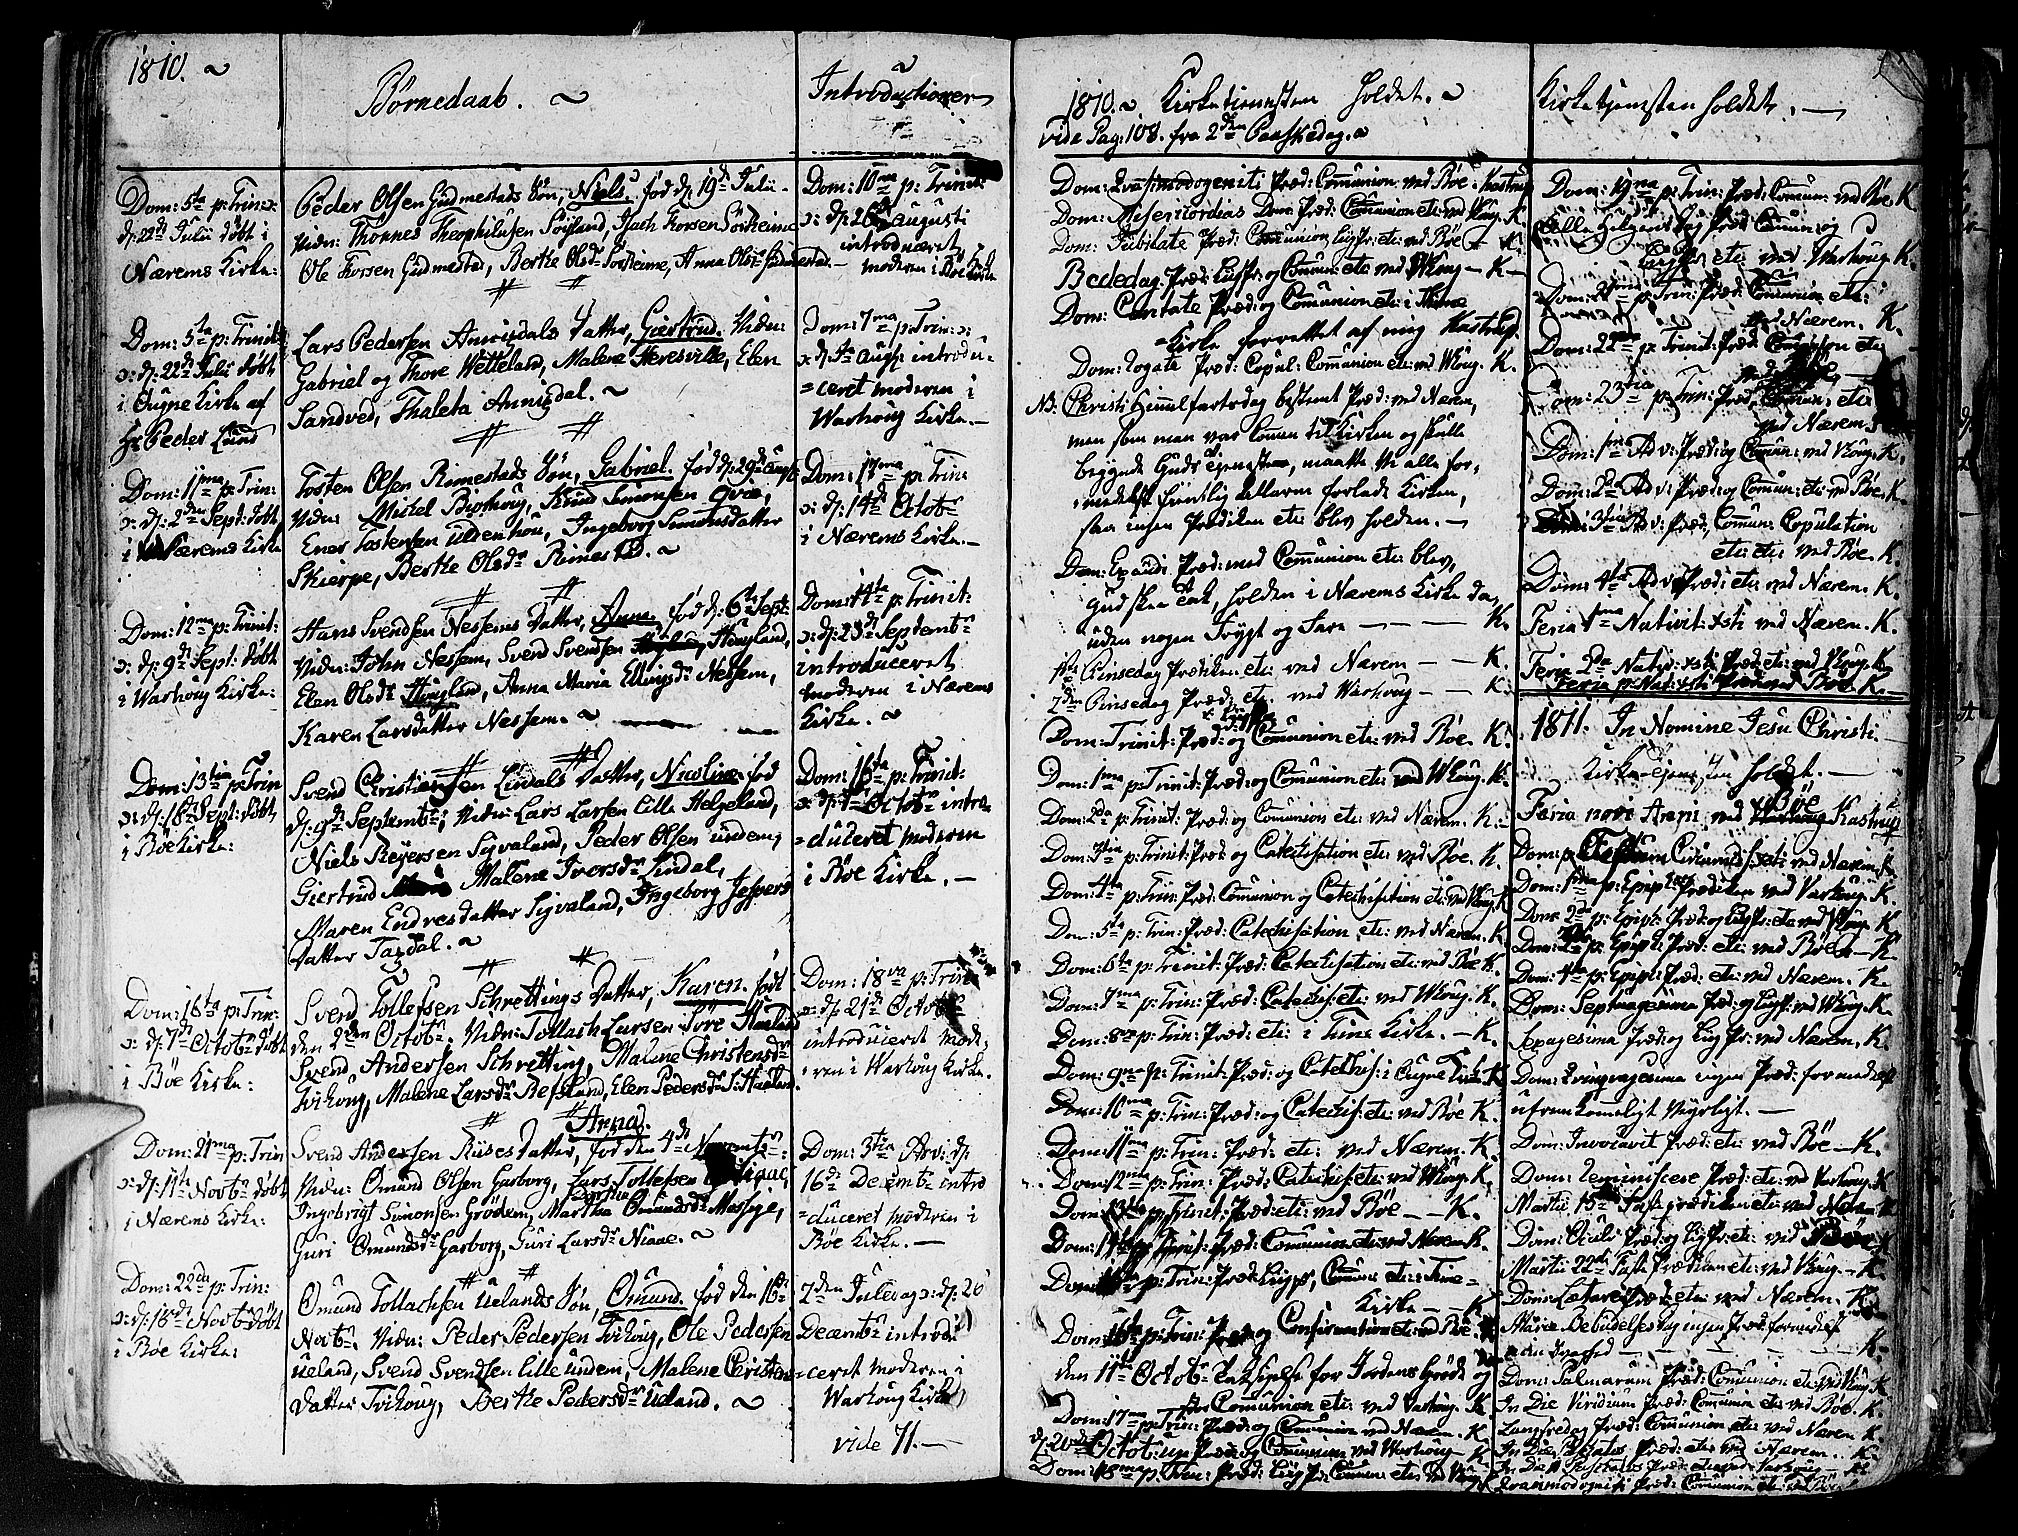 1810. ~
Børnedaab. ~
Introductioner
Dom: 5ta p: Trin: ɔ:
d: 22de Julii døbt i
Nærems Kirke:
Peder Olsen Gudmestads Søn, Niels, fød d: 19de Julii.
Vidn: Thonnes Theophilusen Søyland, Isach Torsen Sørheime
Ole Torsen Gudmestad, Berthe Olsdr Sørheime, Anna Olsdr Gudmestad.
Dom: 10ma p: Trinit:
ɔ: d: 26de Augusti
introduceret
moderen i Bøe Kirke
Dom: 5ta p: Trinit:
ɔ: d: 22de Julii døbt
i Ougne Kirke af
Hr Peder Lund
Lars Pedersen Annisdals Datter, Giertrud. Vidn:
Gabriel og Thore Wetteland, Malene Heresville, Elen
Sandved, Thaleta Annisdal. ~
Dom: 7ma p: Trin: ɔ:
d: 5te Aug: introdu-
=ceret moderen i
Warhoug Kirke. —
Dom: 11ma p: Trin:
ɔ: d: 2den Sept: døbt
i Nærems Kirke
Tosten Olsen Rimestads Søn, Gabriel, fød d: 29de Aug:
Vidn: Mickel Bishoug, Knud Simonsen
Ener Tostensen Uldenhou, Ingeborg Simonsdatter
Skierpe, Berthe Olsdr Rimestad. ~
Dom: 17ma p: Trin:
ɔ: d: 14de Octobr
i Nærems Kirke. —
Dom: 12ma p: Trinit:
ɔ: d: 9de Sept: døbt
i Warhoug Kirke:
Hans Svendsen Nessems Datter, Anna, fød d: 6te Sept:
Vidn: John Nessem, Svend Svendsen Houyland,
Elen Olsdr Houyland, Anna Maria Ellingsdr Nessem,
Karen Larsdatter Nessem. ~
Dom: 14ta p: Trinit:
ɔ: d: 23de Septembr
introduceret
moderen i Nærems
Kirke. ~
Dom: 13tia p: Trin
ɔ: d: 16de Sept: døbt
i Bøe Kirke:
Svend Christiansen Lindals Datter, Nicolina fød
d: 9de Septembr; Vidn: Lars Larsen Lille Helgeland,
Niels Reyersen Sigvaland, Peder Olsen Undem,
Giertrud Malene Iversdr Lindal,
Maren Endresdatter Sigvaland, Ingeborg Jespers
Datter Taxdal. ~
Dom: 16ta p: Trinit:
ɔ: d: 7de Octobr intro-
=duceret moderen
i Bøe Kirke. —
Dom: 16ta p: Trin:
ɔ: d: 7de Octobr døbt
i Bøe Kirke:
Svend Tollefsen Schrettings Datter, Karen. født
den 2den Octobr. Vidn: Tollach Larsen Søre Haaland
Svend Andersen Schretting, Malene Christensdr
Tvihoug, Malene Larsdr Refsland, Elen Pedersdr S: Haaland.
Dom: 18va p: Trin
ɔ: d: 21de Octobr
introduceret mode-
ren i Warhoug Kirke.
Dom: 21ma p: Trin
ɔ: d: 11te Novbr døbt
i Nærems Kirke:
Anna.
Svend Andersen Riises Datter, fød den 4de Novembr:
Vidn: Omund Olsen Garborg, Lars Tollefsen Niaae,
Ingebrigt Simonsen Grødem, Martha Omundsdr Mossige,
Guri Omundsdr Garborg, Guri Larsdr Niaae. ~
Dom: 3tia Adv: d:
16de Decembr intro
=duceret moderen i
Bøe Kirke. —
Dom: 22da p: Trin:
ɔ: d: 18de Novbr døbt
i Bøe Kirke:
Omund Tollachsen Uelands Søn, Omund. fød den 16de
Novbr. Vidn: Peder Pedersen Tvihoug, Ole Pedersen
Ueland, Svend Svendsen Lille Undem, Malene Christens
Datter Tvihoug, Berthe Pedersdr Ueland. ~
2den Juledag ɔ: d: 26
Decembr introdu
=ceret moderen i
Warhoug Kirke
vide 71. —
1810. ~ Kirketienesten holdet. ~
vide Pag: 108. fra 2den Paaskedag. ~
Dom: Quasimodogeniti Præd: Communion ved Bøe: Kastrup
Dom: Misericordias Dom: Præd: Communion etc: ved Whoug. K.
Dom: Jubilate Præd: Communion etc: ved Bøe — K.
Bededag Præd: og Commun: etc ved Whoug — K —
Dom: Cantate Præd: og Communion etc: i Thime
=Kirke forrettet af mig Kastrup.
Dom: Rogate Præd: Copul: Communion etc: ved Whoug. K.
NB. Christi Himmelfartsdag bestemt Præd: ved Nærem,
men som man var kommen til Kirken og skulle
begynde Guds tjenesten, maatte vi alle for-
medelst fiendtlig allarm forlade Kirken,
saa ingen Prædiken etc: blev holden. —
Dom: Exaudi Præd: med Communion etc: blev,
Gud skee Tak, holden i Nærems Kirke da,
uden nogen Frygt og Fare — — — K.
1ste Pinsedag Prædiken etc: ved Nærem — — K.
2den Pinsedag Præd: etc ved Warhoug — — K.
Dom: Trinit: Præd: og Communion etc: ved Bøe. K.
Dom: 1ma p: Trinit: Præd: og Communion etc: ved Whoug. K.
Dom: 2da p: Trinit: Præd: og Communion etc ved Nærem. K. —
Dom: 3tia p: Trinit: Præd: og Catechisation etc: ved Bøe. K.
Dom: 4ta p: Trin: Præd: Comunion og Catechisation etc: ved Whoug. K
Dom: 5ta p: Trin: Præd: Catechisation etc: ved Nærem. K
Dom: 6ta p: Trinit: Præd: Catechisation etc: ved Bøe K.
Dom: 7ma p: Trin: Præd: Catechis: etc: ved Whoug. K.
Dom: 8va p: Trin: Præd: etc: i Time Kirke. — K.
Dom: 9na p: Trinit: Præd: og Catechis: i Ougne Kirke K
Dom: 10ma p: Trin: Præd: og Catechis: etc: ved Bøe K.
Dom: 11ma p: Trin: Præd: etc: ved Nærem. K.
Dom: 12ma p: Trin: Præd: Catechis: etc: ved Whoug. K.
Dom: 13tia p: Trinit: Præd: etc: ved Bøe — — K.
Dom: 14ta p: Trinit: Præd: Communion etc: ved Nærem K.
Dom: 15ta p: Trin: Præd: Commun etc: i Time=
Kirke — — K
Dom: 16ta p: Trin: Præd: og Confirmation etc: ved Bøe
den 11te Octobr Taksigelse for Jordens Grøde og
Communion etc: ved Warhoug. K.
Dom: 17ma p: Trin: Præd: og Communion ved Nærem K
d: 20de Octob: Præd: Communion ved Warhoug K.
Dom: 18va p: Trin: Præd: Commun: etc ved Whoug K
Kirketjenesten holdet. —
Dom: 19na p: Trin: Præd: Commun: ved Bøe K
Alle Helgens dag Præd: Comun: og
etc: ved Warhoug. K.
Dom: 21ma p: Trin: Præd: Comunion etc:
ved Nærem. K.
Dom: 22da p: Trinit: Præd: Comunion etc:
Dom: 23tia p: Trin: Præd: Commun: etc:
ved Nærem.
Dom: 1ma Adv: Præd: og Comun: ved Whoug. K.
Dom: 2da Adv: Præd: og Comun: etc: ved Bøe. K.
Dom: 3tia Adv: Præd: Commun: Copulation
etc: etc: ved Bøe. K.
Dom: 4ta Adv: Præd: etc: ved Nærem. K.
Feria 1ma Nativit: Xsti ved Nærem. K.
Feria 2da Nativ: Xsti Præd: etc: ved Whoug. K.
Feria p: Nat: Xsti Præd: ved Bøe. K. —
1811. In Nomine Jesu Christi
Kirketjenesten holdet. —
Feria novi Anni ved Bøe Kastrup
Dom: p: Festum Circumcis: Xsti ved Nærem. K.
Dom: 1ma p: Epiph: Prædiken ved Varhoug. K.
Dom: 2da p: Epiph: Præd: etc ved Whoug. K
Dom: 3tia p: Epiph: Præd: etc: ved Bøe — K.
Dom: 4ta p: Epiph: Præd: etc: ved Nærem. K.
Dom: Septuagesima Præd: ved Whoug. K.
Sexagesima Præd: og ved Nærem. K.
Dom: Quinquagesima ingen Præd: formedelst
ufremkomeligt Vejrligt. —
Dom: Invocavit Præd: etc: ved Bøe — K.
Dom: Reminiscere Præd: etc: ved Varhoug. K
Martii 15de Faste prædiken etc: ved Nærem K
Dom: Oculi Præd: etc: ved Bøe K
Martii 22de Faste Prædiken etc: ved Whoug. — K.
Dom: Lætare Præd: etc: ved Nærem. K.
Mariæ Bebudelses dag ingen Præd: formedelst
— — — — K.
Dom: Palmarum Præd: Communion etc: ved Whoug K
In Die Viridium Præd: Communion etc: ved Bøe. K.
Langfredag Præd: Communion etc: ved Nærem K.
In Die Paschatos Præd: etc: ved Nærem. K.
In Die 2 Paschatos Præd: etc: ved Varhoug K
Quasimodogeniti Præd: Comunion etc: ved Bøe